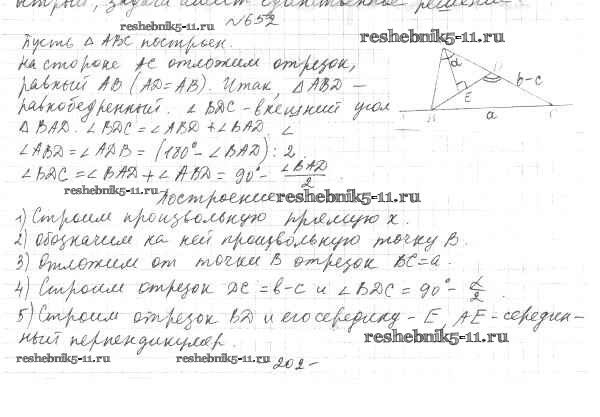 острый, задача имеет единственное решение
reshebnik5-11.ru
№652
reshebnik5-11.ru
Пусть △ ABC построен.
На стороне AC отложим отрезок,
равный AB (AD=AB). Итак, △ABD –
равнобедренный. ∠BDC - внешний угол
△ BAD. ∠BDC = ∠ABD + ∠BAD. ∠
∠ABD = ∠ADB = (180° - ∠BAD) : 2.
∠BDC = ∠BAD + ∠ABD = 90° - ∠BAD/2.
α
D
b-c
E
B
a
C
reshebnik5-11.ru
Построение
reshebnik5-11.ru
1) Строим произвольную прямую x.
2) Обозначим на ней произвольную точку B.
3) Отложим от точки B отрезок BC=a.
4) Строим отрезок DC = b-c и ∠BDC = 90° - α/2.
5) Строим отрезок BD и его середину - E, AE - середин-
ный перпендикуляр.
reshebnik5-11.ru
reshebnik5-11.ru
reshebnik5-11.ru
202-